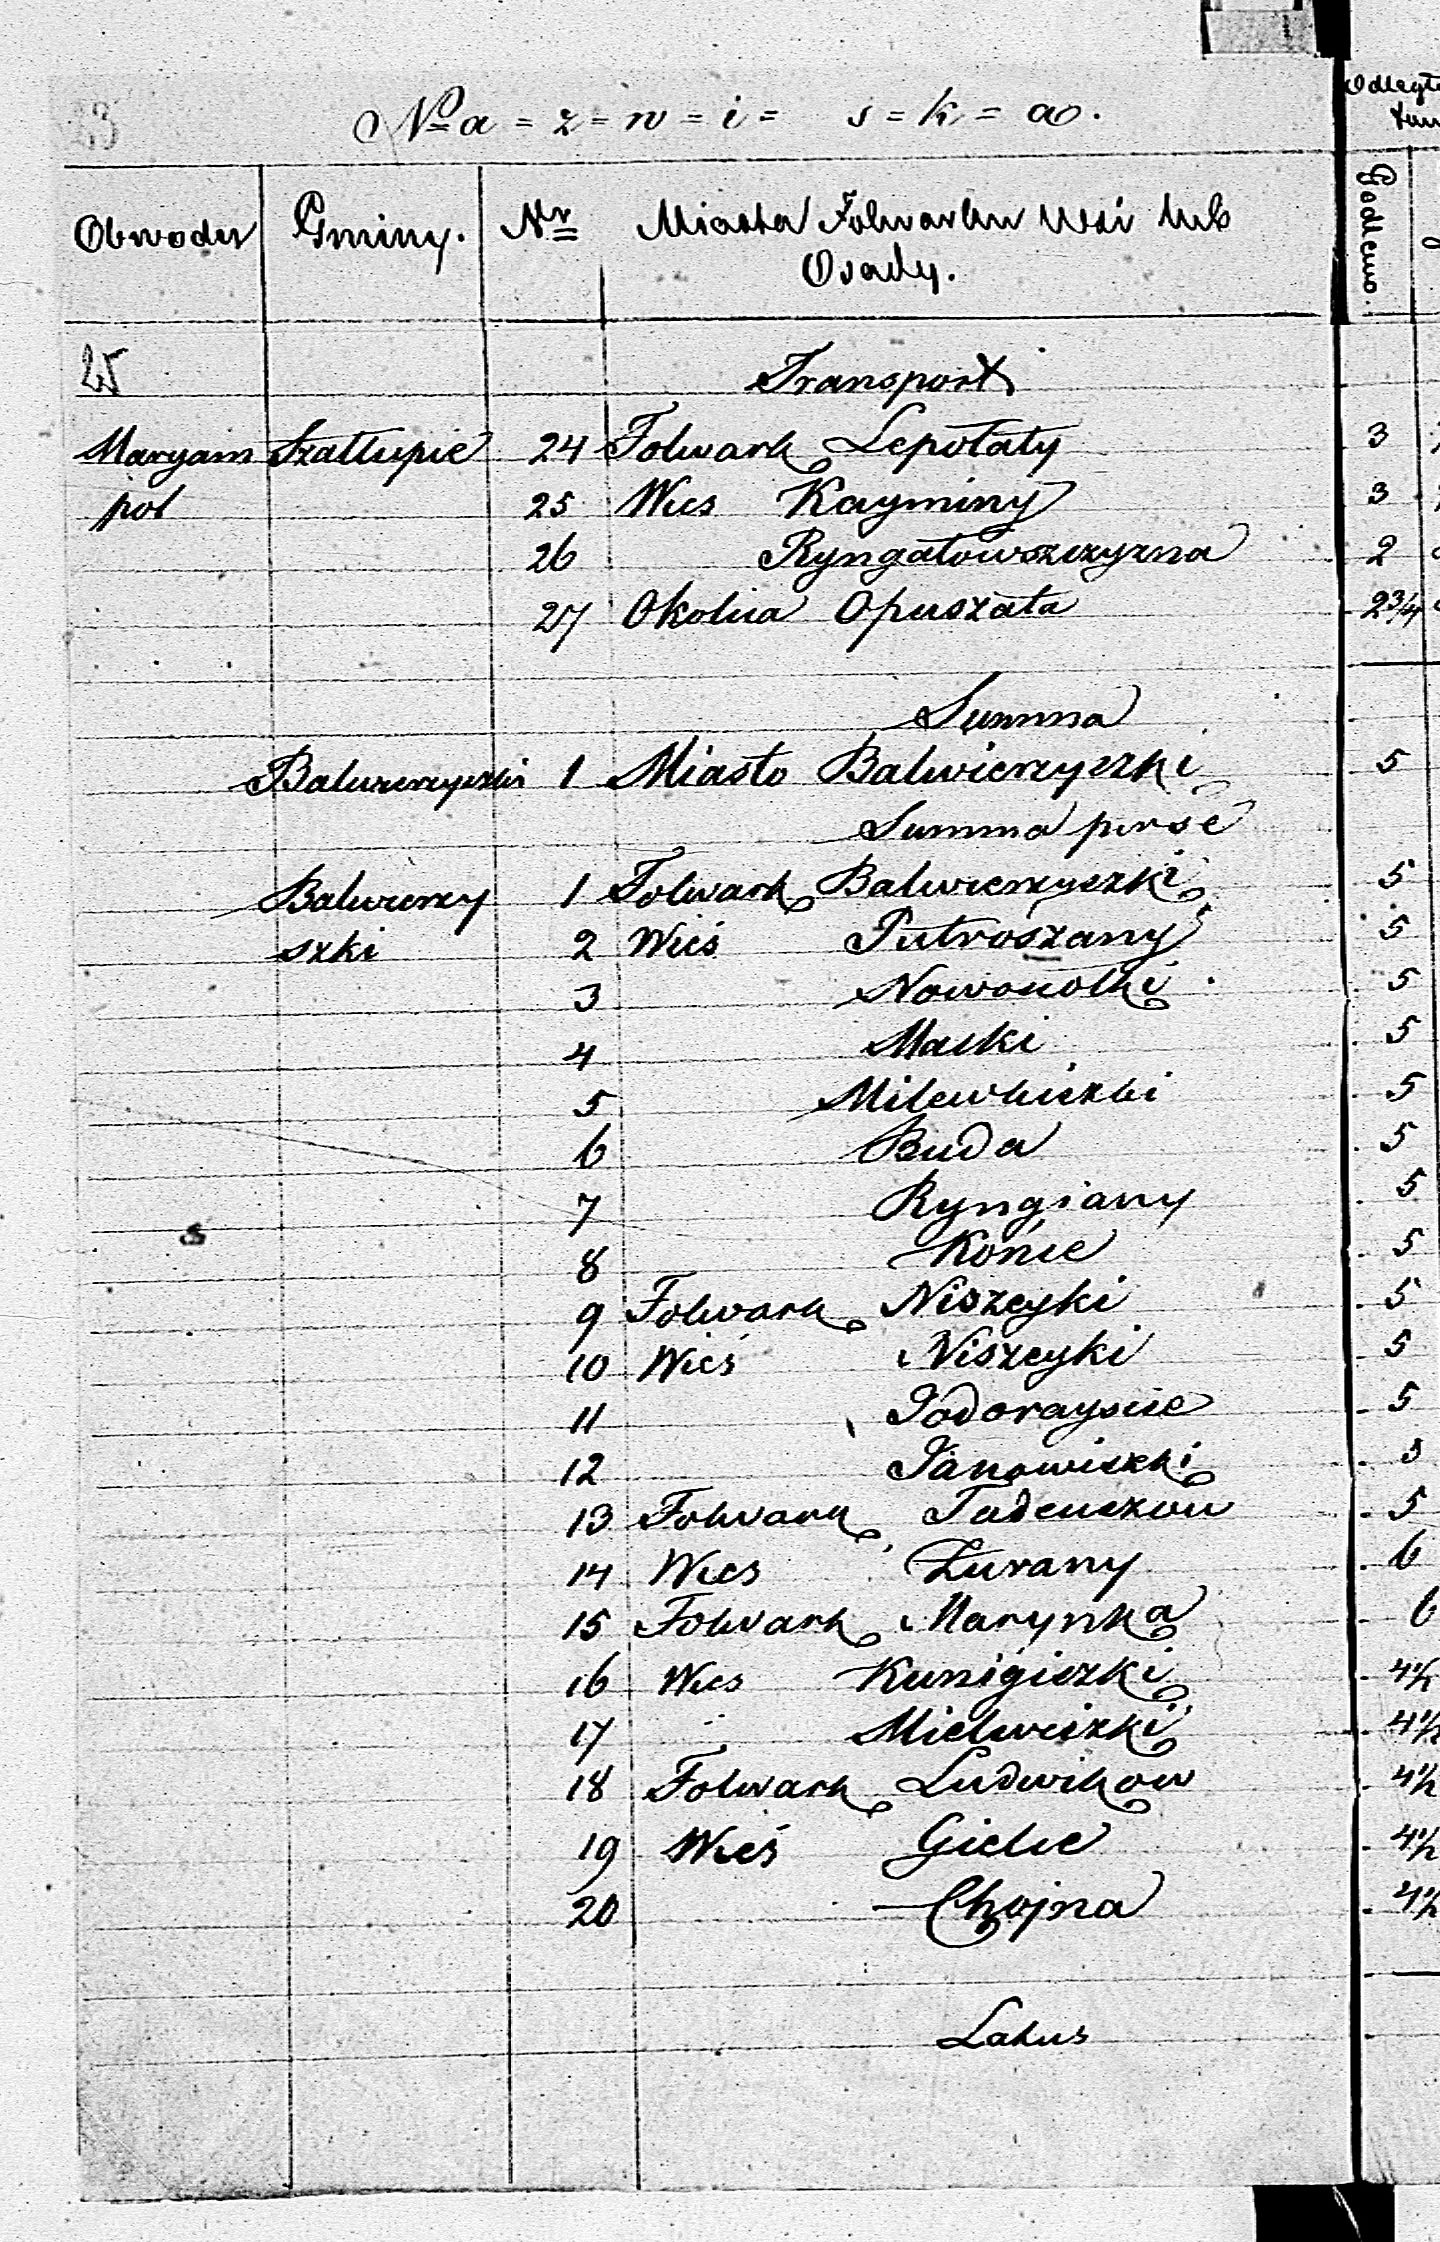 Na=z=w=i= s=k=a.
Odległ
Obwodu Gminy. Nr Miasta Folwarku Wsi lub
Osady.
25 Transport
Maryam Szatłupie 24 Folwark Lepołaty 3
pol 25 Wies Kayminy 3
26 Ryngałowszczyzna 2
27 Okolica Opuszała 2 3/4
Summa
Balwierzyszki 1 Miasto Balwierzyszki 5
Summa per se
Balwierzy 1 Folwark Balwierzyszki 5
szki 2 Wieś Putroszany 5
3 Nowowolki 5
4 Macki 5
5 5
6 Buda 5
7 Ryngiany 5
8 Końce 5
9 Folwark Niszeyki 5
10 Wieś Niszeyki 5
11 Podorayscie 5
12 Janowiszki 5
13 Folwark Tadeuszow 5
14 Wies Żurany 6
15 Folwark Marynka 6
16 Wies Kunigiszki 4 1/2
17 Mielwiszki 4 1/2
18 Folwark Ludwikow 4 1/2
19 Wieś Gielie 4 1/2
20 Chojna 4 1/2
Latus